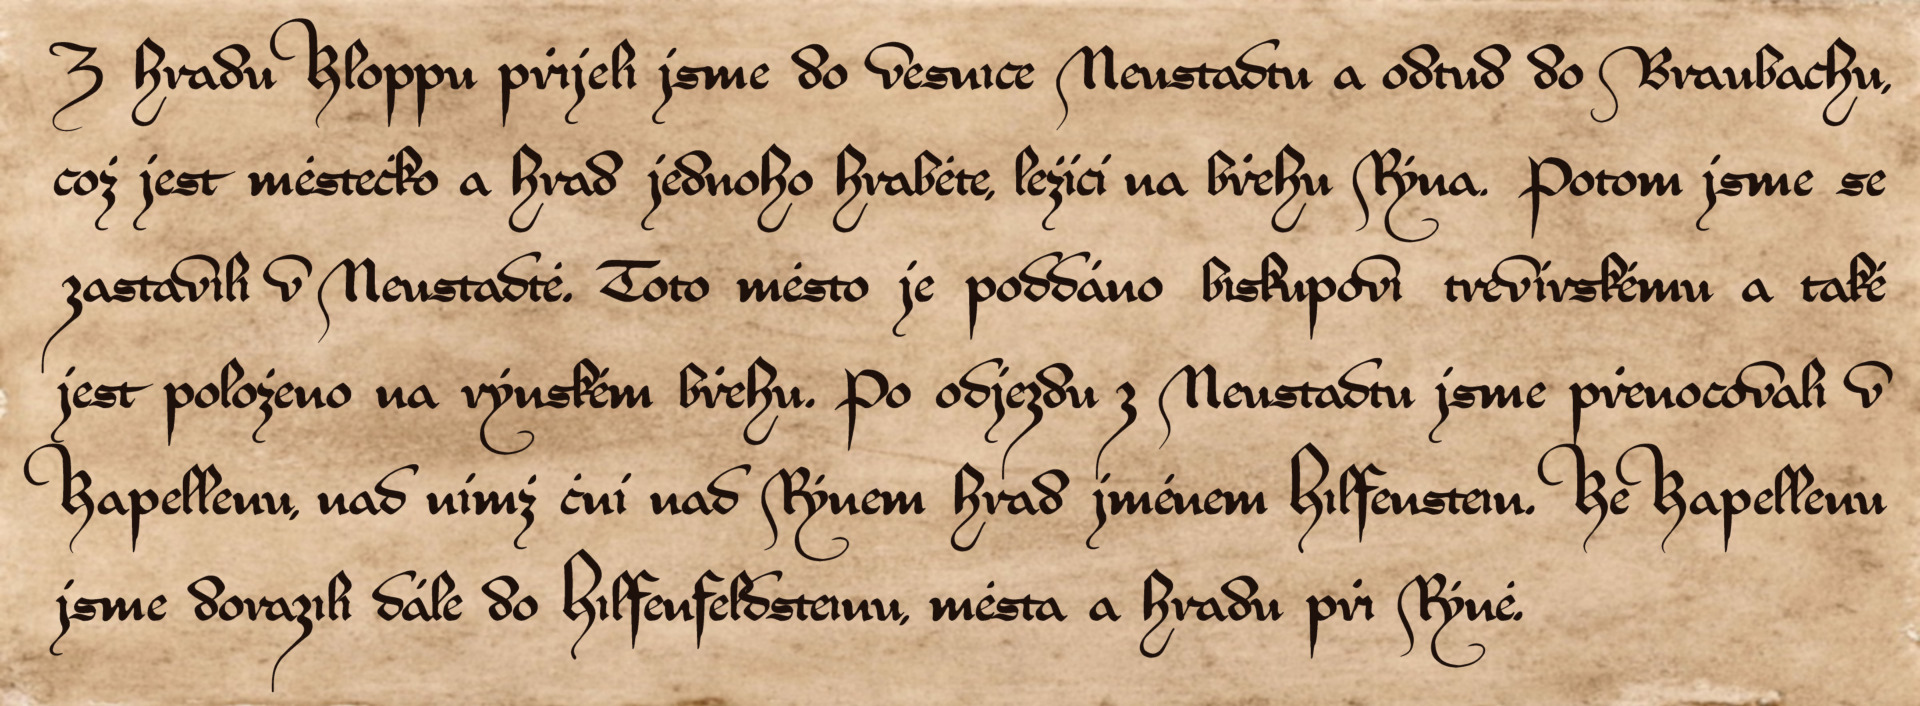 Z hradu Kloppu přijeli jsme do vesnice Neustadtu a odtud do Braubachu,
což jest městečko a hrad jednoho hraběte, ležící na břehu Rýna. Potom jsme se
zastavili v Neustadtě. Toto město je poddáno biskupovi trevírskému a také
jest položeno na rýnském břehu. Po odjezdu z Neustadtu jsme přenocovali v
Kapellenu, nad nímž ční nad Rýnem hrad jménem Hilfenstein. Ke Kapellenu
jsme dorazili dále do Hilfenfeldsteinu, města a hradu při Rýně.